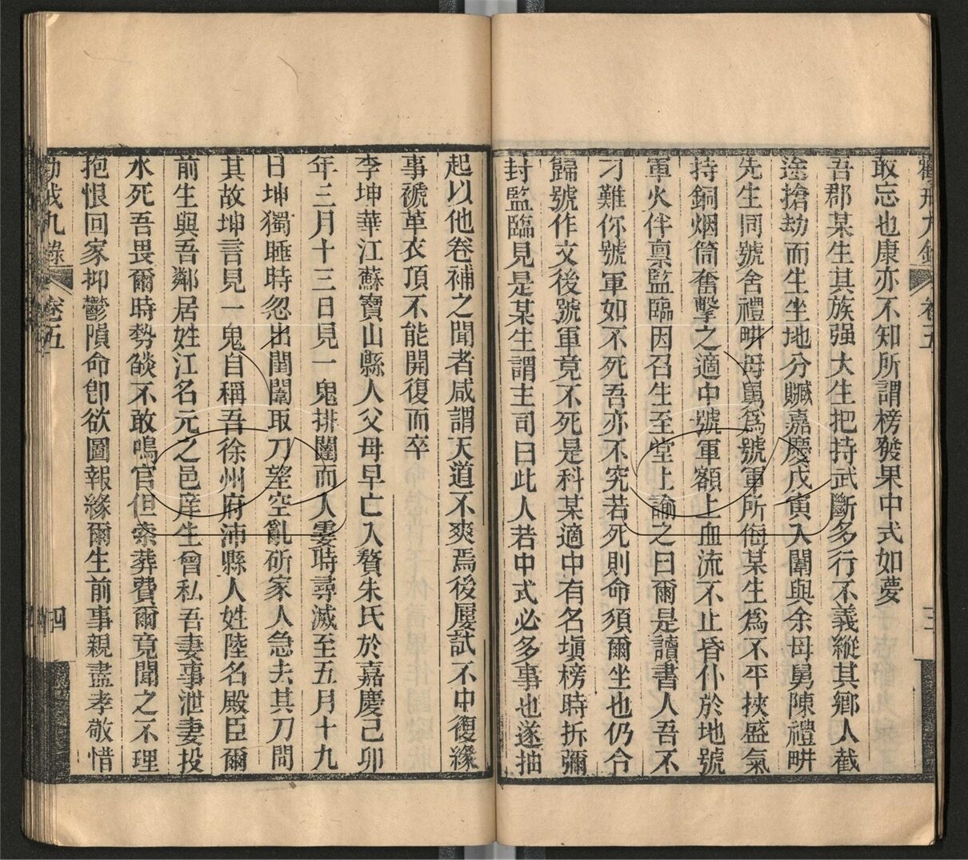 敢忘也康亦不知所謂榜發果中式如夢
吾郡某生其族强大生把持武斷多行不義縱其鄉人截
途搶劫而生坐地分贓嘉慶戊寅入闈與余母舅陳禮畊
先生同號舍禮畊母舅爲號軍所侮某生爲不平挾盛氣
持銅烟筒奮擊之適中號軍額上血流不止昏仆於地號
軍火伴禀監臨因召生至堂上諭之曰爾是讀書人吾不
刁難你號軍如不死吾亦不究若死則命須爾坐也仍令
歸號作文後號軍竟不死是科某適中有名塡榜時拆彌
封監臨見是某生謂主司曰此人若中式必多事也遂抽
卷五
三
起以他卷補之聞者咸謂天道不爽焉後屢試不中復緣
事褫革衣頂不能開復而卒
李坤華江蘇寶山縣人父母早亡入贅朱氏於嘉慶己卯
年三月十三日見一鬼排闥而入霎時尋滅至五月十九
日坤獨睡時忽出閨闥取刀望空亂斫家人急去其刀問
其故坤言見一鬼自稱吾徐州府沛縣人姓陸名殿臣爾
前生與吾鄰居姓江名元之邑庠生曾私吾妻事泄妻投
水死吾畏爾時勢燄不敢鳴官但索葬費爾竟聞之不理
抱恨回家抑鬱隕命卽欲圖報緣爾生前事親盡孝敬惜
勸戒九錄
卷五
四